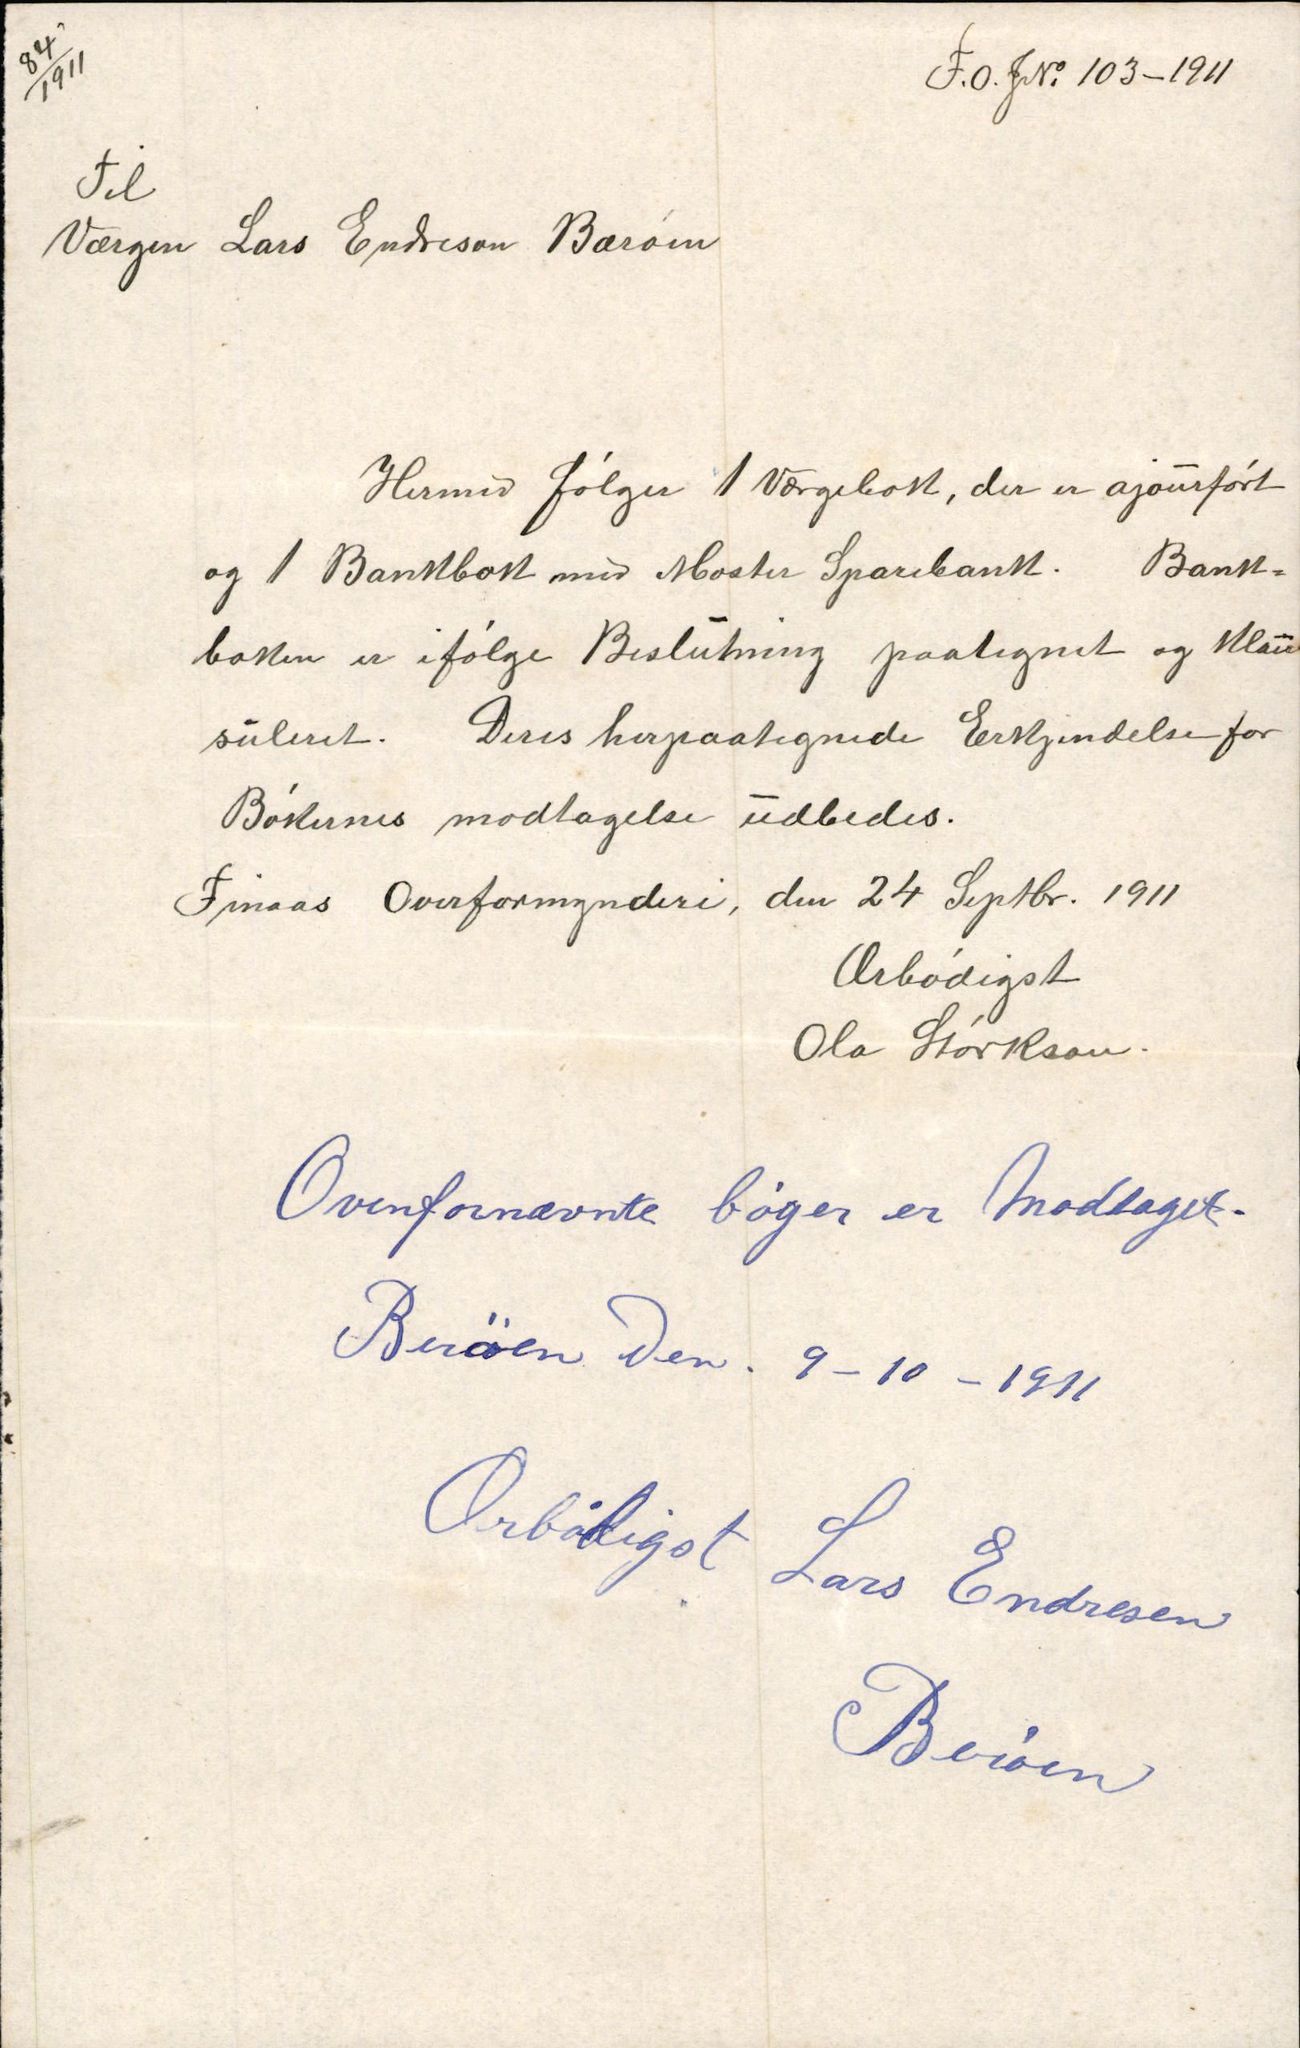 84/1911
F.O. J.No. 103-1911
Til
Værgen Lars Endreson Bærøen
Hermed følger 1 Værgebok, der er ajourført
og 1 Bankbok med Moster Sparebank. Bank-
boken er ifølge Beslutning paategnet og klau
suleret. Deres herpaategnede Erkjendelse for
Bøkernes modtagelse udbedes.
Finaas Overformynderi, den 24 Septbr. 1911
Ærbødigst
Ola Størkson.
Ovenfornævnte bøger er Modtaget.
Berøen Den. 9-10-1911
Ærbødigst Lars Endresen
Berøen